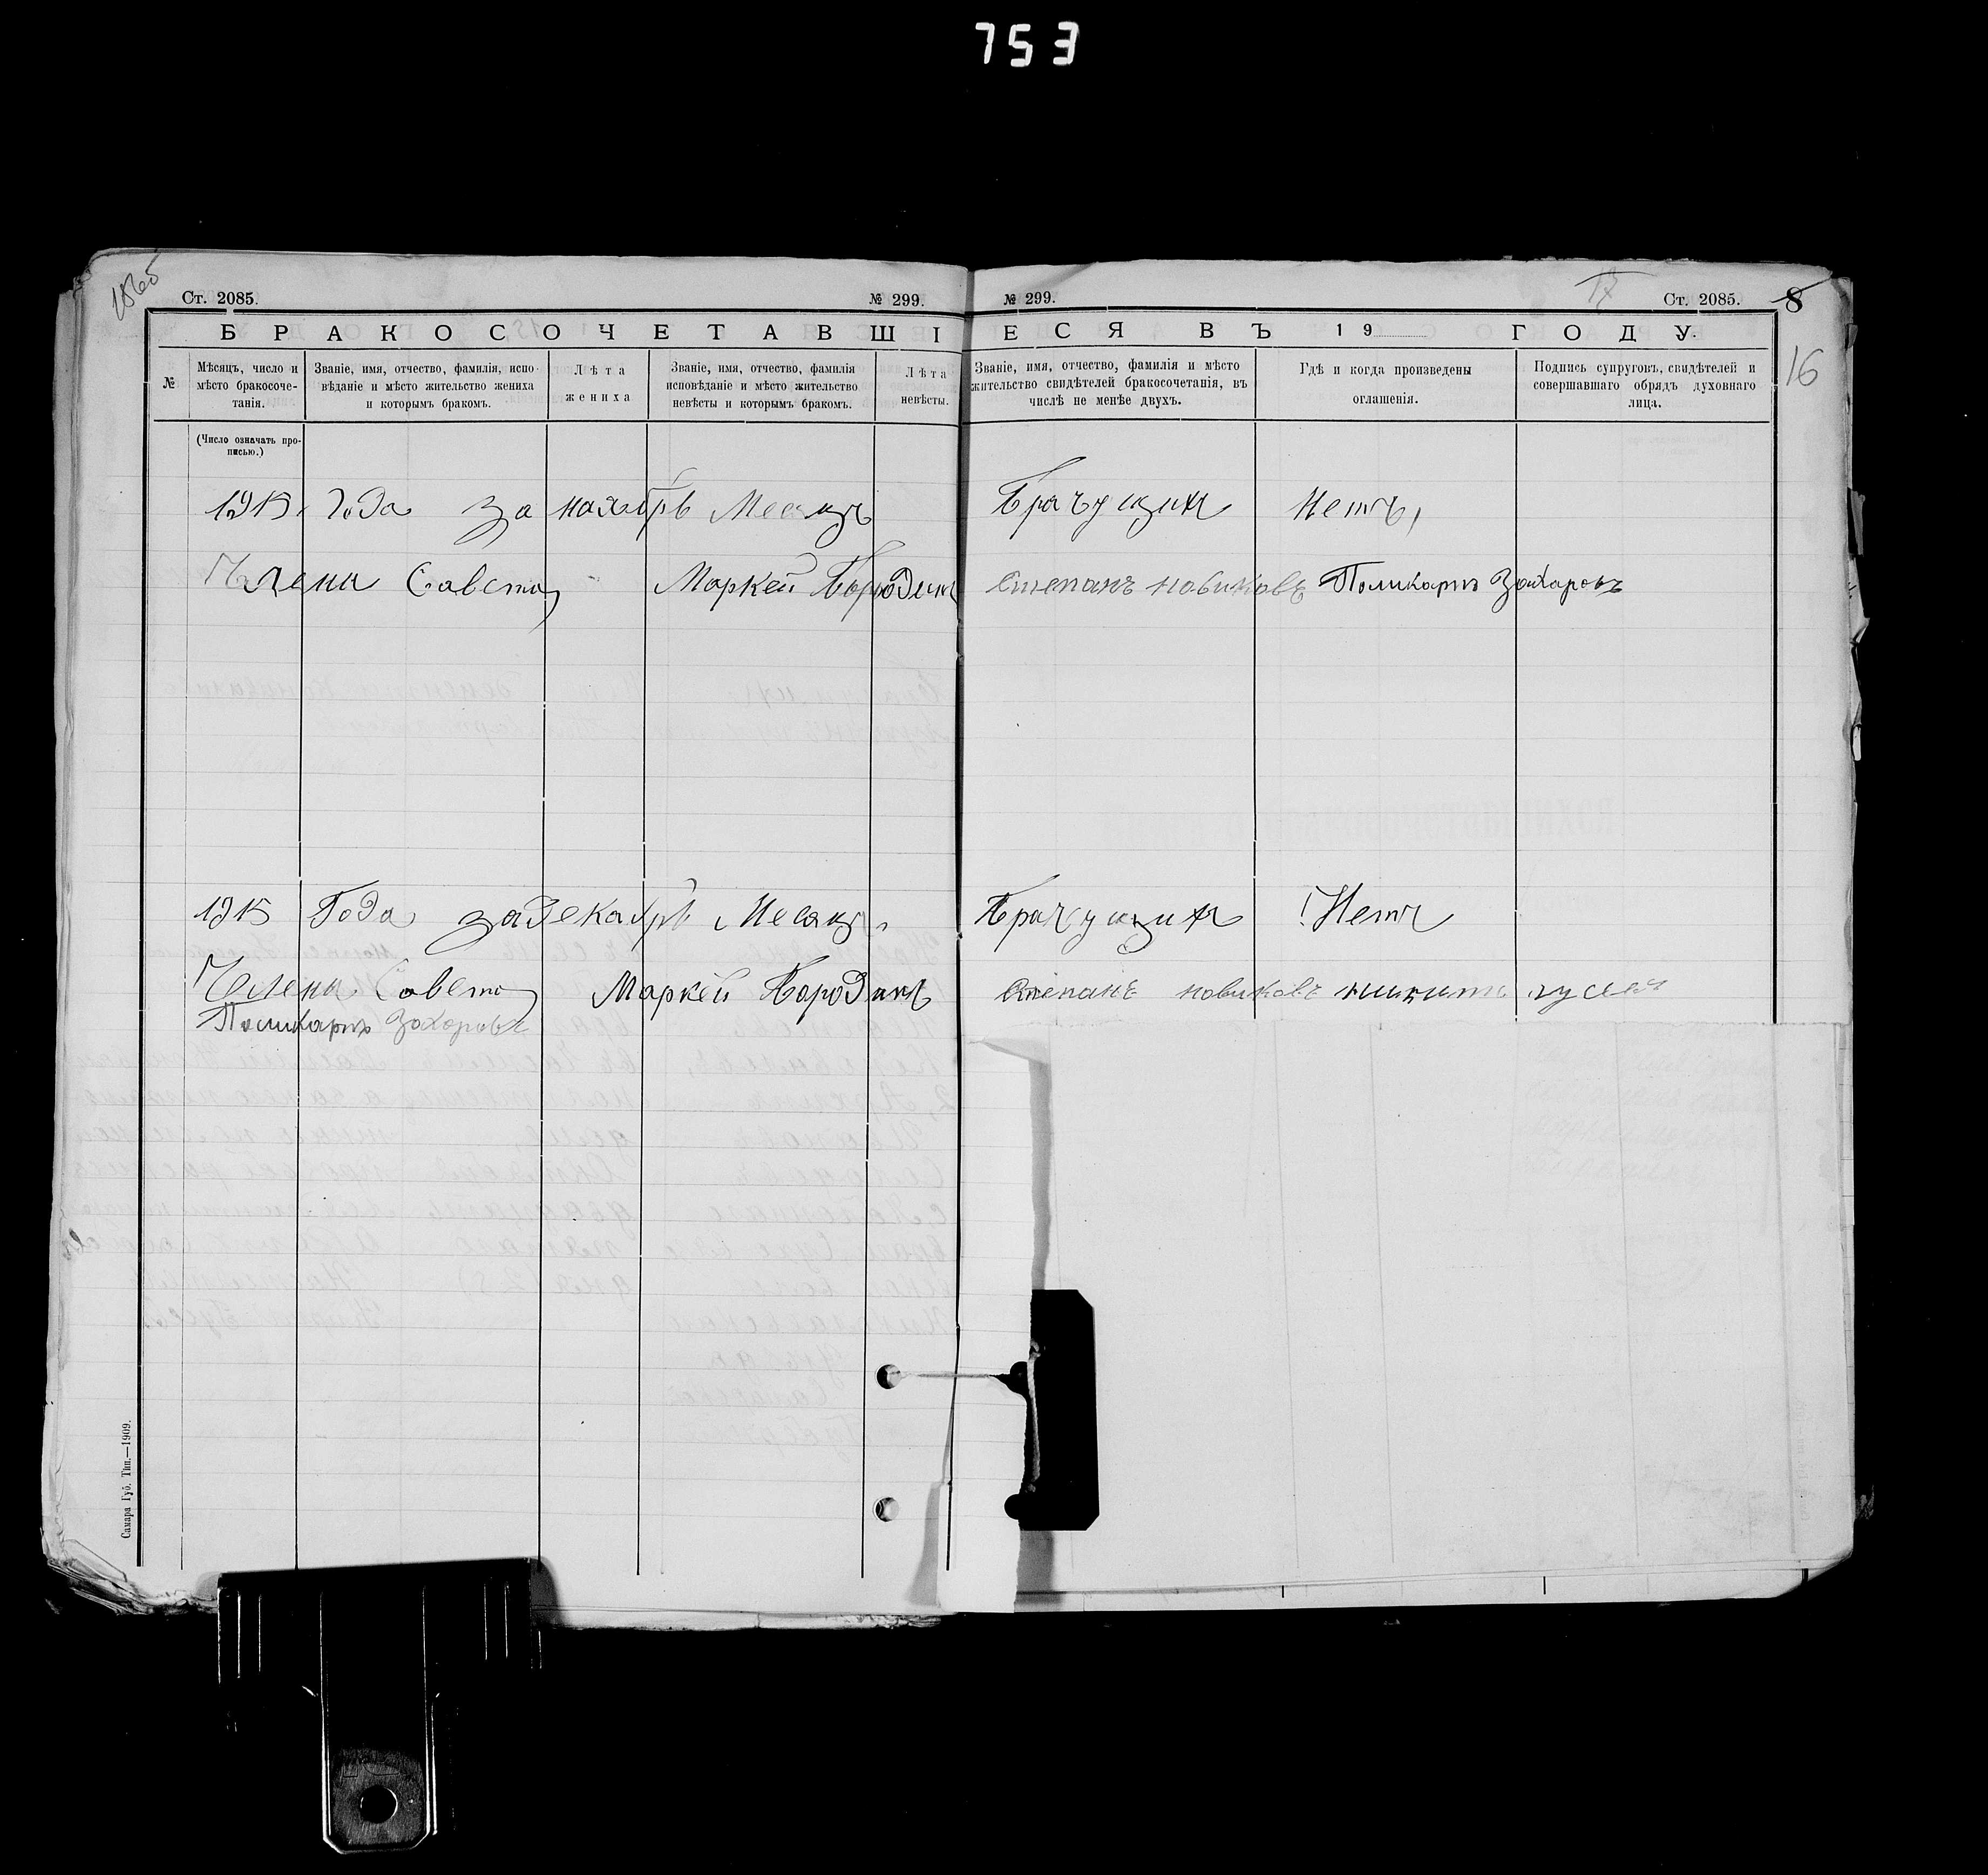 753
Ст. 2085.
№ 299.
№ 299.
Ст. 2085.
8
16
БРАКОСОЧЕТАВШІЕСЯ ВЪ 19 ГОДУ.
№
Мѣсяцъ, число и
мѣсто бракосоче-
танія.
Званіе, имя, отчество, фамилія, испо-
вѣданіе и мѣсто жительство жениха
и которымъ бракомъ.
Лѣта
жениха
Званіе, имя, отчество, фамилія
исповѣданіе и мѣсто жительство
невѣсты и которымъ бракомъ.
Лѣта
невѣсты.
Званіе, имя, отчество, фамилія и мѣсто
жительство свидѣтелей бракосочетанія, въ
числѣ не менѣе двухъ.
Гдѣ и когда произведены
оглашенія.
Подпись супруговъ, свидѣтелей и
совершавшаго обрядъ духовнаго
лица.
(Число означать про-
писью.)
1915 Года за наябрь Месяцъ Брачущих Нетъ,
Члены Савета Маркей Бородинъ Степанъ новиковъ Поликарпъ Захаровъ
1915 Года за декабрь Месяцъ Брачущих Нетъ
Члены Савета Маркей Бородинъ Степанъ новиковъ никита гусев
Поликарпъ Захоровъ
Самара Губ. Тип.—1909.